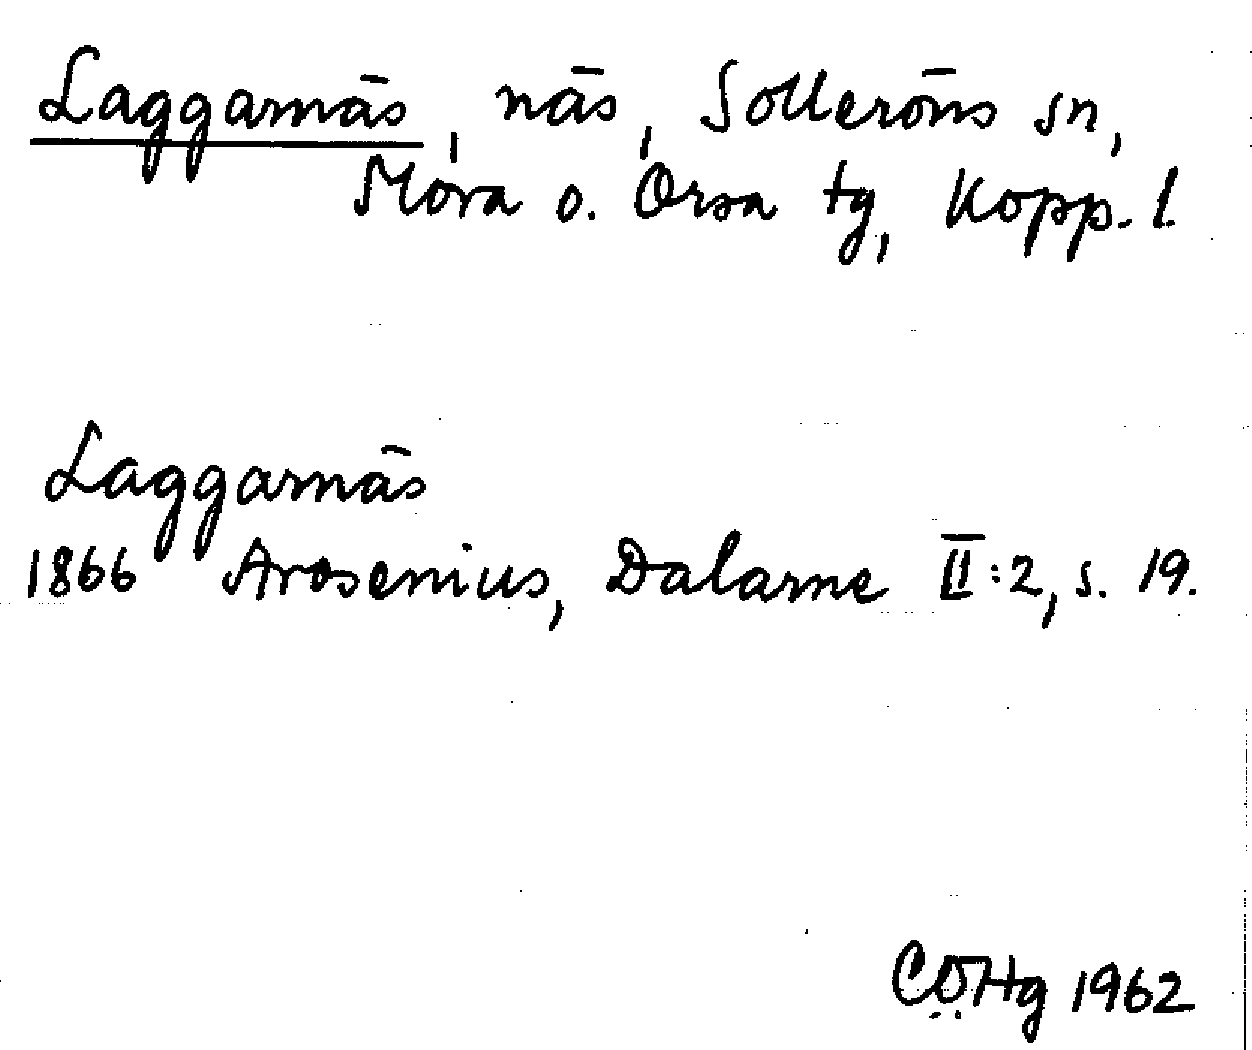 Laggarnäs, näs, Solleröns sn,
Mora o. Orsa tg, Kopp. l.
Laggarnäs
1866 Arosenius, Dalarne II:2, s. 19.
CÖHg 1962